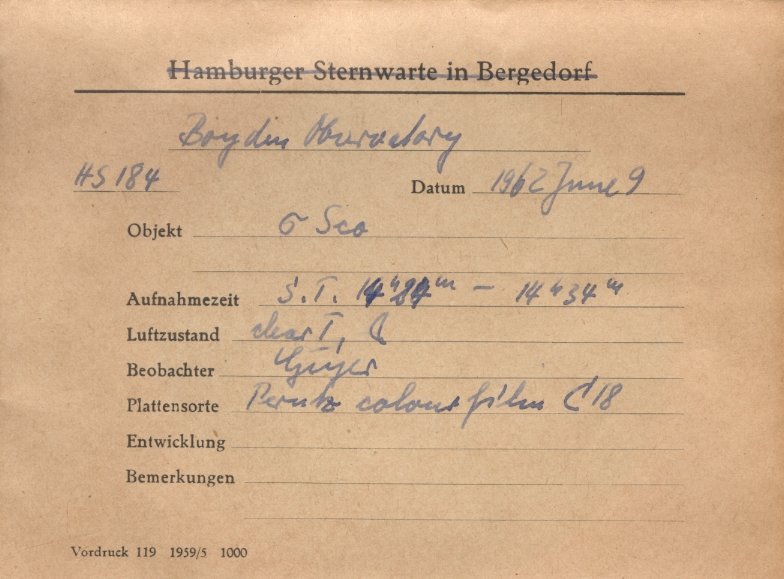 Hamburger Sternwarte in Bergedorf
Boyden Observatory
HS 184 Datum 1962 June 9
Objekt σ Sco
Aufnahmezeit S.T. 14ʰ24ᵐ – 14ʰ34ᵐ
Luftzustand clear I, ☾
Beobachter Geyer
Plattensorte Perutz colour film C 18
Entwicklung
Bemerkungen
Vordruck 119 1959/5 1000